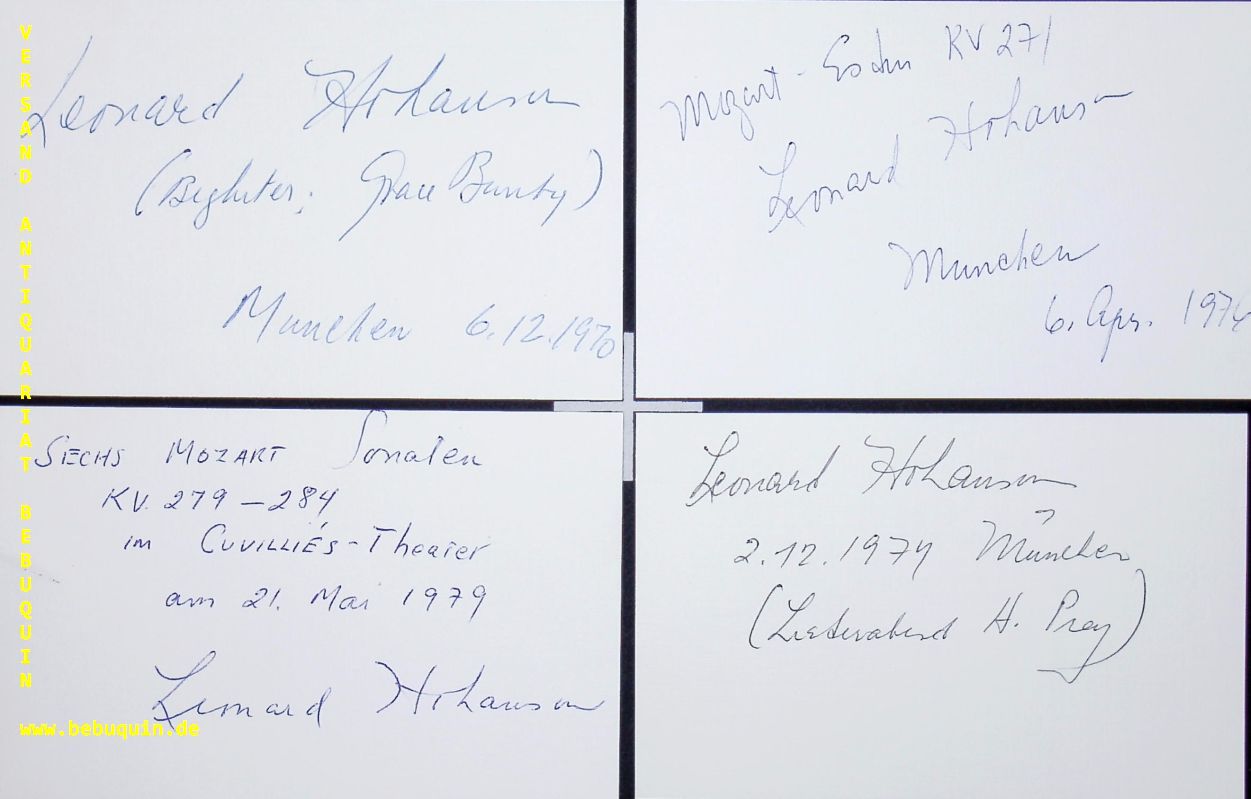 Leonard Hokanson
(Begleiter: Grace Bumbry)
München 6.12.1970
Mozart - Es dur KV 271
Leonard Hokanson
München
6. Apr. 1974
SECHS MOZART Sonaten
KV. 279 – 284
im CUVILLIÉS-Theater
am 21. Mai 1979
Leonard Hokanson
Leonard Hokanson
2.12.1974 München
(Liederabend H. Prey)
VERSAND ANTIQUARIAT BEBUQUIN
www.bebuquin.de